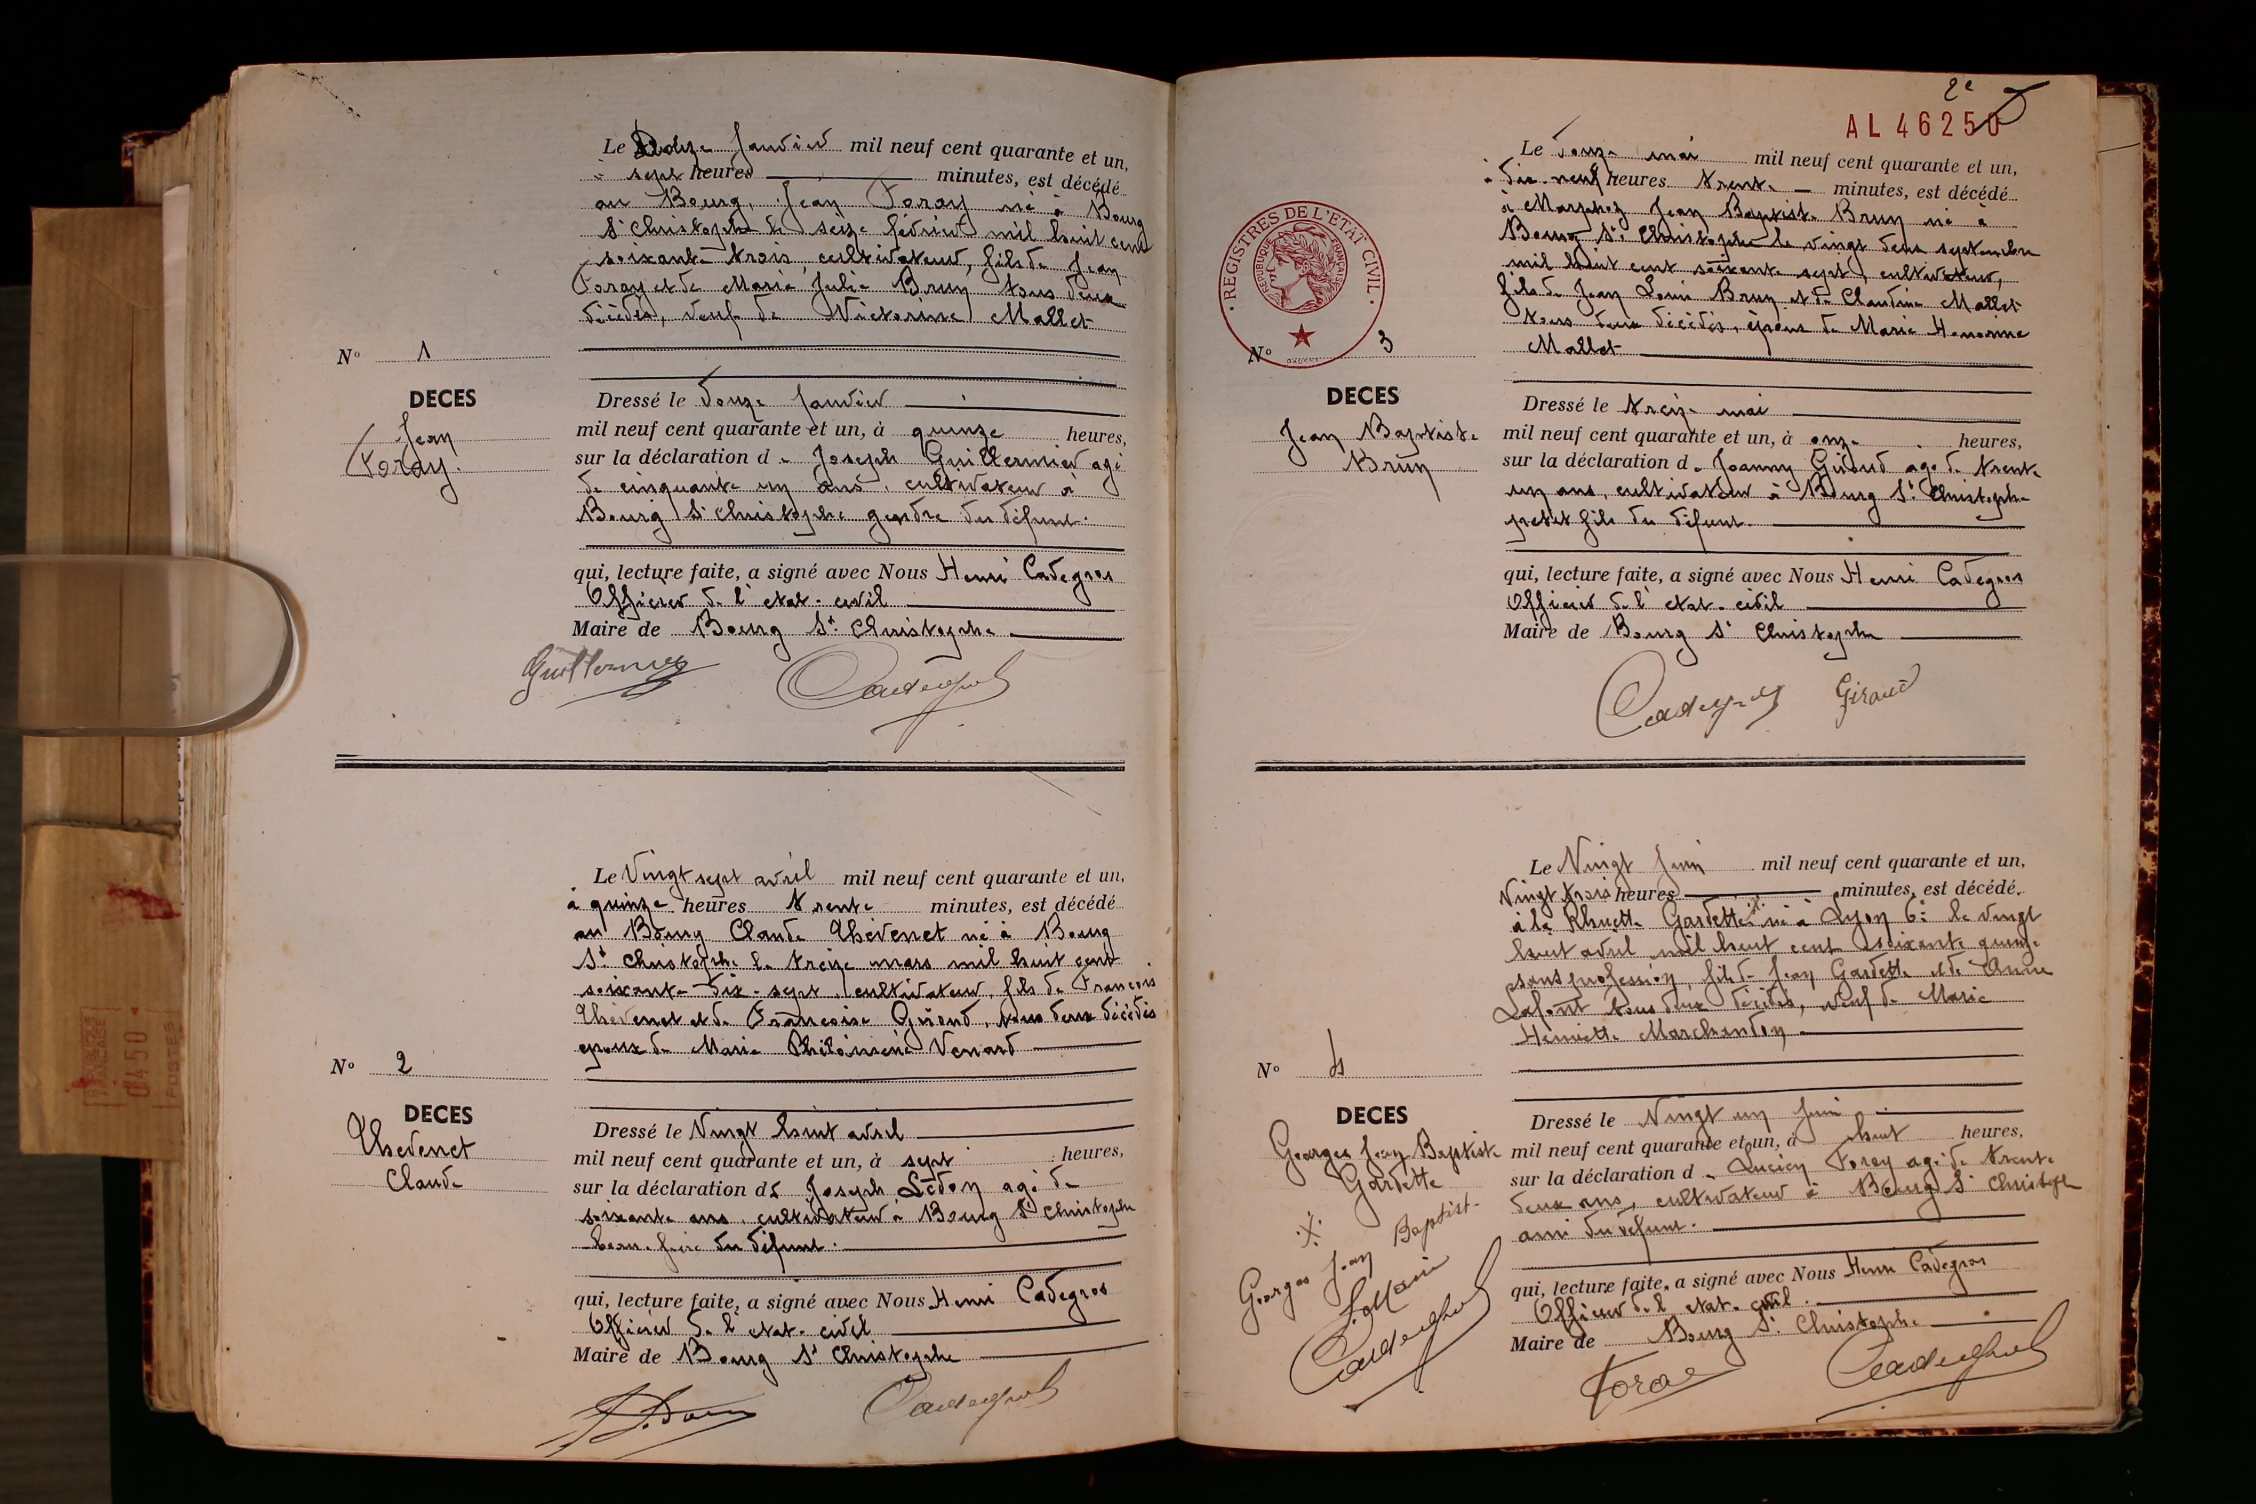 Le Douze Janvier mil neuf cent quarante et un,
à sept heures minutes, est décédé
au Bourg, Jean Foray né à Bourg
St Christophe le seize février mil huit cent
soixante trois, cultivateur, fils de Jean
Foray et de Marie Julie Brun tous deux
décédés, veuf de Victorine Mallet
No 1
DECES
Jean
Foray.
Dressé le douze Janvier
mil neuf cent quarante et un, à quinze heures,
sur la déclaration de Joseph Guillermier agé
de cinquante un ans, cultivateur à
Bourg St Christophe gendre du défunt.
qui, lecture faite, a signé avec Nous Henri Cadegros
Officier de l'état-civil
Maire de Bourg St Christophe
Guillermier Cadegros
Le Vingt sept avril mil neuf cent quarante et un,
à quinze heures trente minutes, est décédé
au Bourg Claude Thévenet né à Bourg
St Christophe le treize mars mil huit cent
soixante-dix-sept, cultivateur, fils de François
Thévenet et de Françoise Giroud, tous deux décédés
epoux de Marie Philomène Venard
No 2
DECES
Thevenet
Claude
Dressé le Vingt huit avril
mil neuf cent quarante et un, à sept heures,
sur la déclaration de Joseph Lédon agé de
soixante ans, cultivateur à Bourg St Christophe
beau-frère du défunt.
qui, lecture faite, a signé avec Nous Henri Cadegros
Officier de l'état-civil
Maire de Bourg St Christophe
Cadegros
2e
AL 46250
REGISTRES DE L'ETAT CIVIL
REPUBLIQUE FRANÇAISE
Le douze mai mil neuf cent quarante et un,
à dix-neuf heures trente minutes, est décédé
à Marphoz Jean Baptiste Brun né à
Bourg St Christophe le vingt deux septembre
mil huit cent soixante sept, cultivateur,
fils de Jean Louis Brun et de Claudine Mallet
tous deux décédés, époux de Marie Honorine
Mallet
No 3
DECES
Jean Baptiste
Brun
Dressé le treize mai
mil neuf cent quarante et un, à onze heures,
sur la déclaration de Joanny Giroud agé de trente
un ans, cultivateur à Bourg St Christophe
petit fils du défunt.
qui, lecture faite, a signé avec Nous Henri Cadegros
Officier de l'état-civil
Maire de Bourg St Christophe
Cadegros Giraud
Le Vingt Juin mil neuf cent quarante et un,
Vingt trois heures minutes, est décédé
à la Gardette né à Lyon 6e le vingt
huit avril mil huit cent soixante quinze
sans profession, fils de Jean Gardette et de Anne
Lafont tous deux décédés, veuf de Marie
Henriette Marchandon
No 4
DECES
Georges Jean Baptiste
Gardette
Georges Jean Baptiste
Le Maire
Cadegros
Dressé le Vingt un Juin
mil neuf cent quarante et un, à huit heures,
sur la déclaration de Lucien Foray agé de trente
deux ans, cultivateur à Bourg St Christophe
ami du défunt.
qui, lecture faite, a signé avec Nous Henri Cadegros
Officier de l'état-civil
Maire de Bourg St Christophe
Foray Cadegros
0450
POSTES